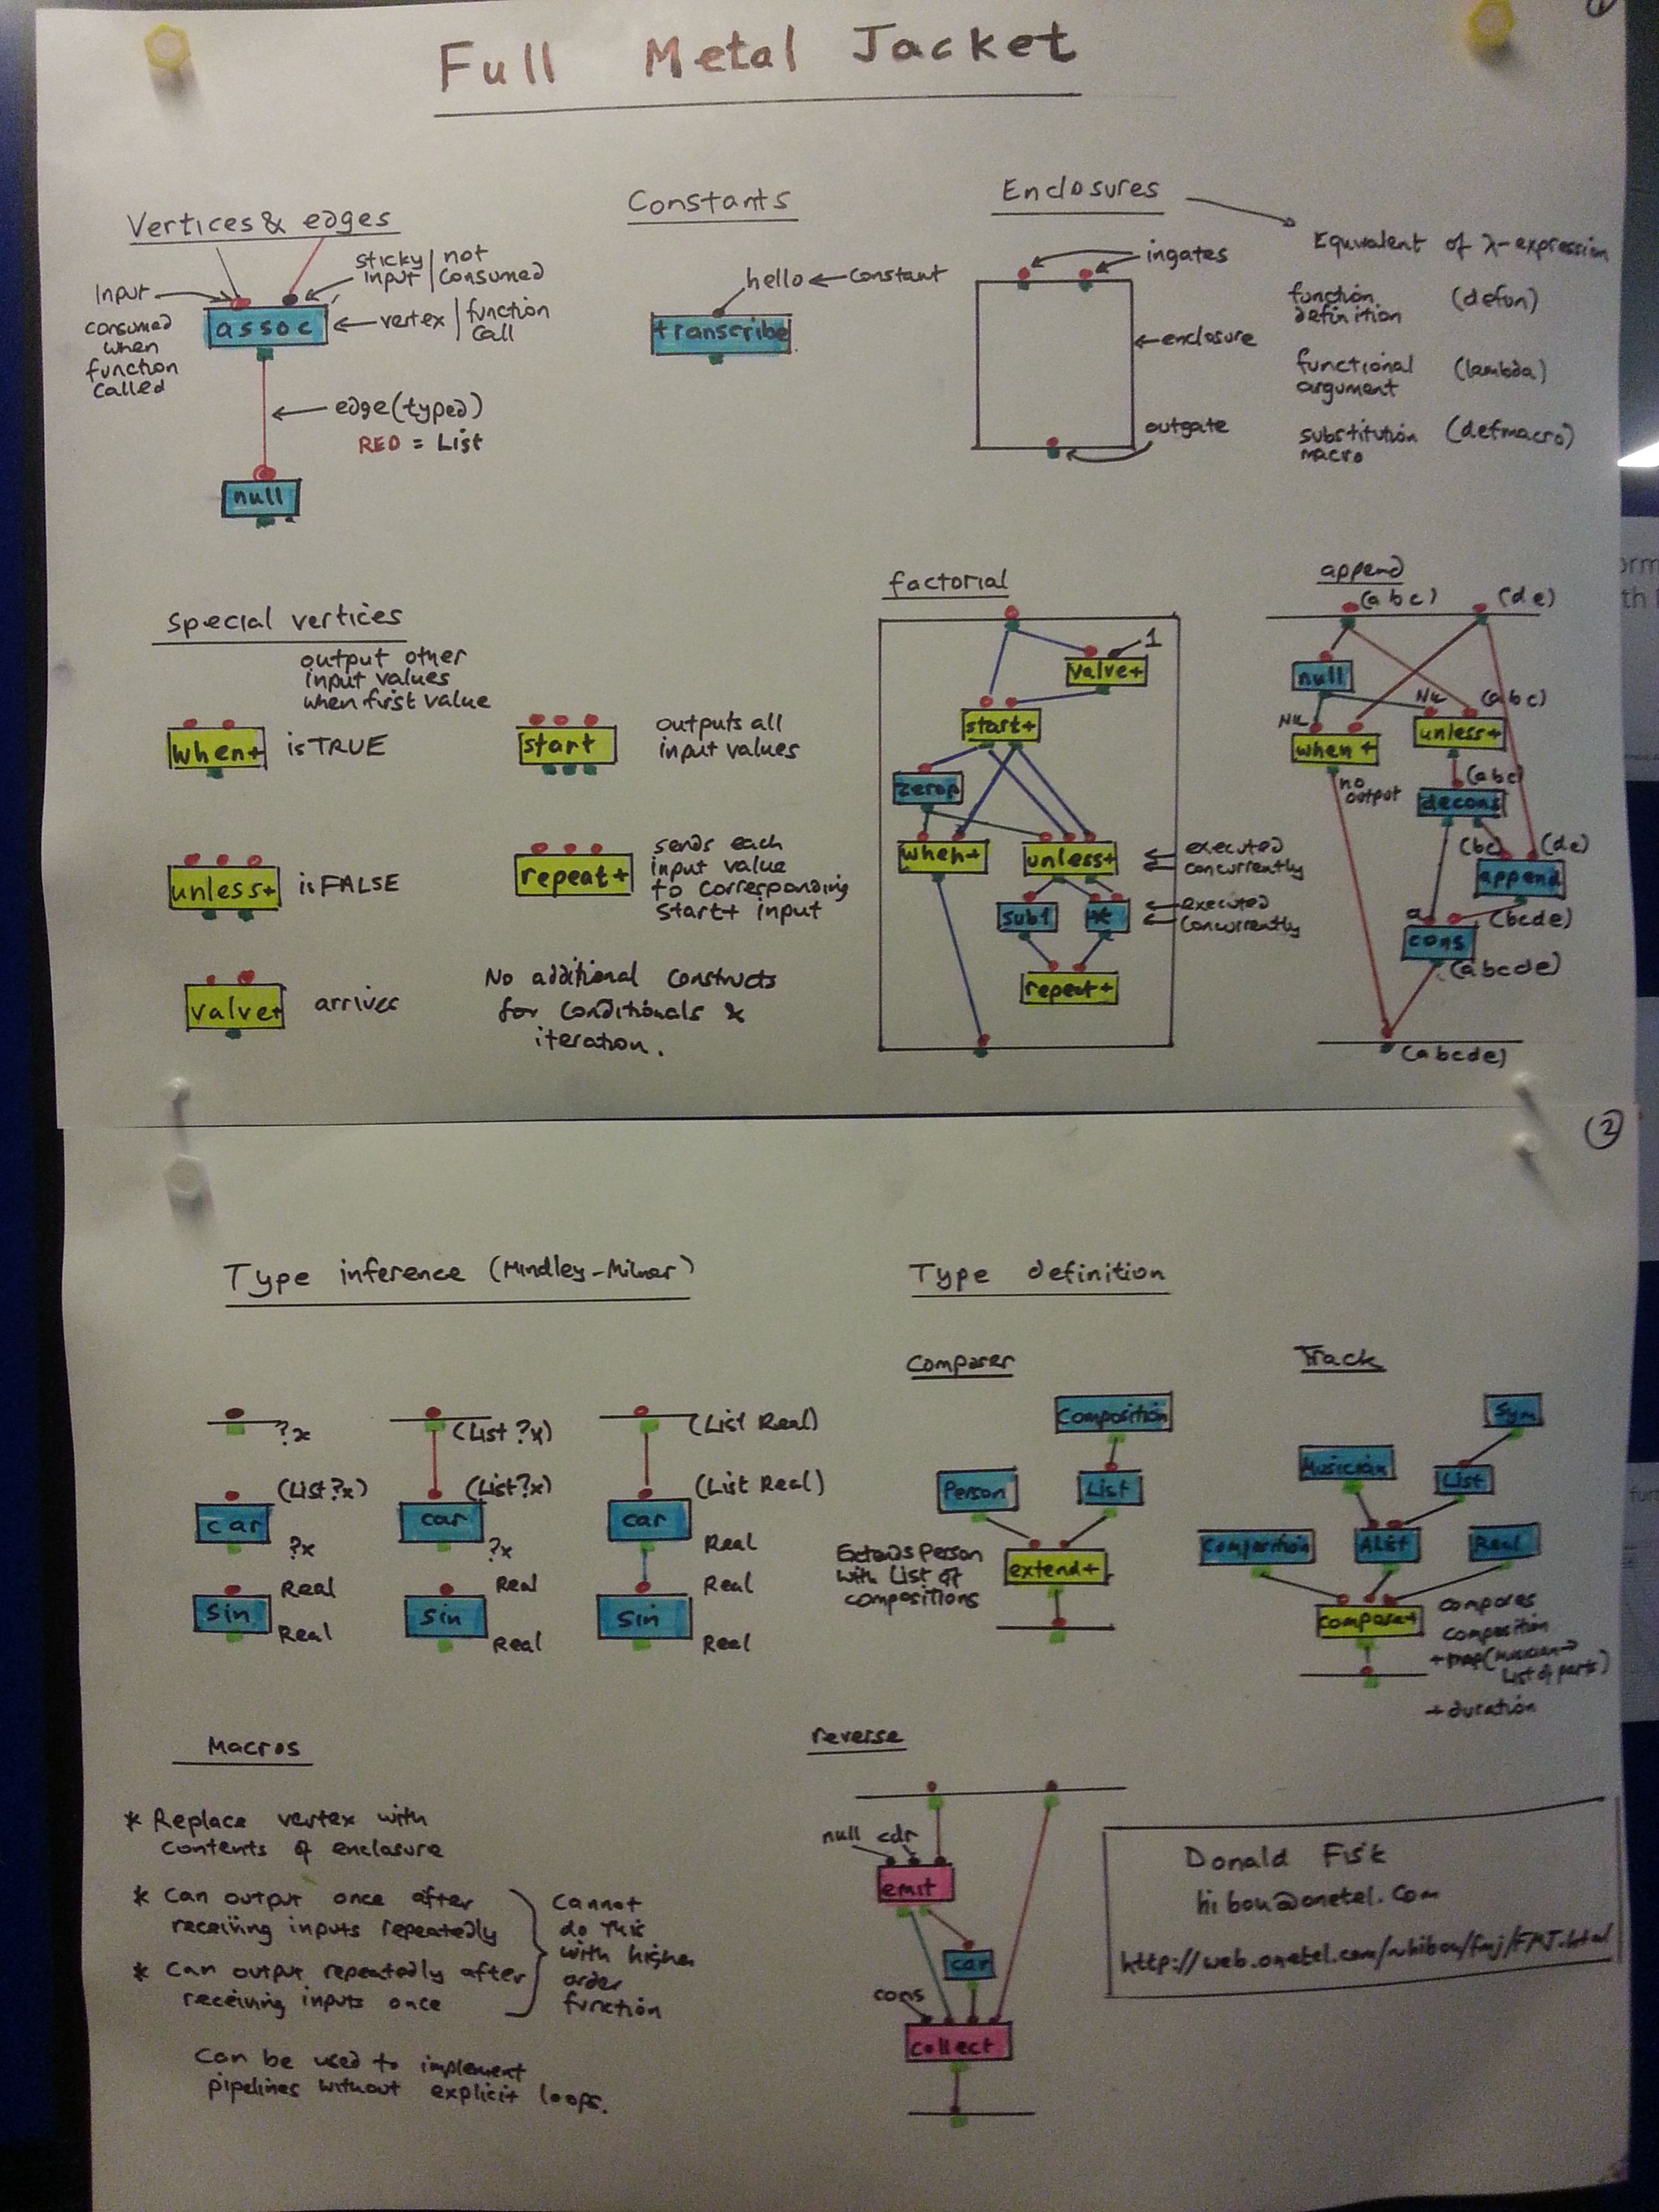 Full Metal Jacket
Vertices & edges
Input
consumed
when
function
called
sticky | not
input | consumed
assoc
vertex | function
call
edge (typed)
RED = List
null
Constants
hello
constant
transcribe
Enclosures
ingates
enclosure
outgate
Equivalent of λ-expression
function (defun)
definition
functional (lambda)
argument
substitution (defmacro)
macro
Special vertices
output other
input values
when first value
when+
is TRUE
start
outputs all
input values
unless+
is FALSE
repeat+
sends each
input value
to corresponding
start+ input
valve+
arrives
No additional constructs
for conditionals &
iteration.
factorial
1
valve+
start+
zerop
when+
unless+
executed
concurrently
sub1
*
executed
concurrently
repeat+
append
(abc)
(de)
null
NIL
NIL
(abc)
when+
unless+
no
output
(abc)
decons
(bc)
(de)
append
a
(bcde)
cons
(abcde)
(abcde)
2
Type inference (Hindley-Milner)
?x
(List ?x)
car
?x
Real
sin
Real
(List ?x)
(List ?x)
car
?x
Real
sin
Real
(List Real)
(List Real)
car
Real
Real
sin
Real
Type definition
Composer
Composition
Person
List
Extends Person
with List of
compositions
extend+
Track
Sym
Musician
List
Composition
AList
Real
compose+
composes
composition
+ map (musician→
List of parts)
+ duration
Macros
* Replace vertex with
contents of enclosure
* Can output once after
receiving inputs repeatedly
* Can output repeatedly after
receiving inputs once
Cannot
do this
with higher
order
function
Can be used to implement
pipelines without explicit loops.
reverse
null cdr
emit
car
cons
collect
Donald Fisk
hibou@onetel.com
http://web.onetel.com/~hibou/fmj/FMJ.html